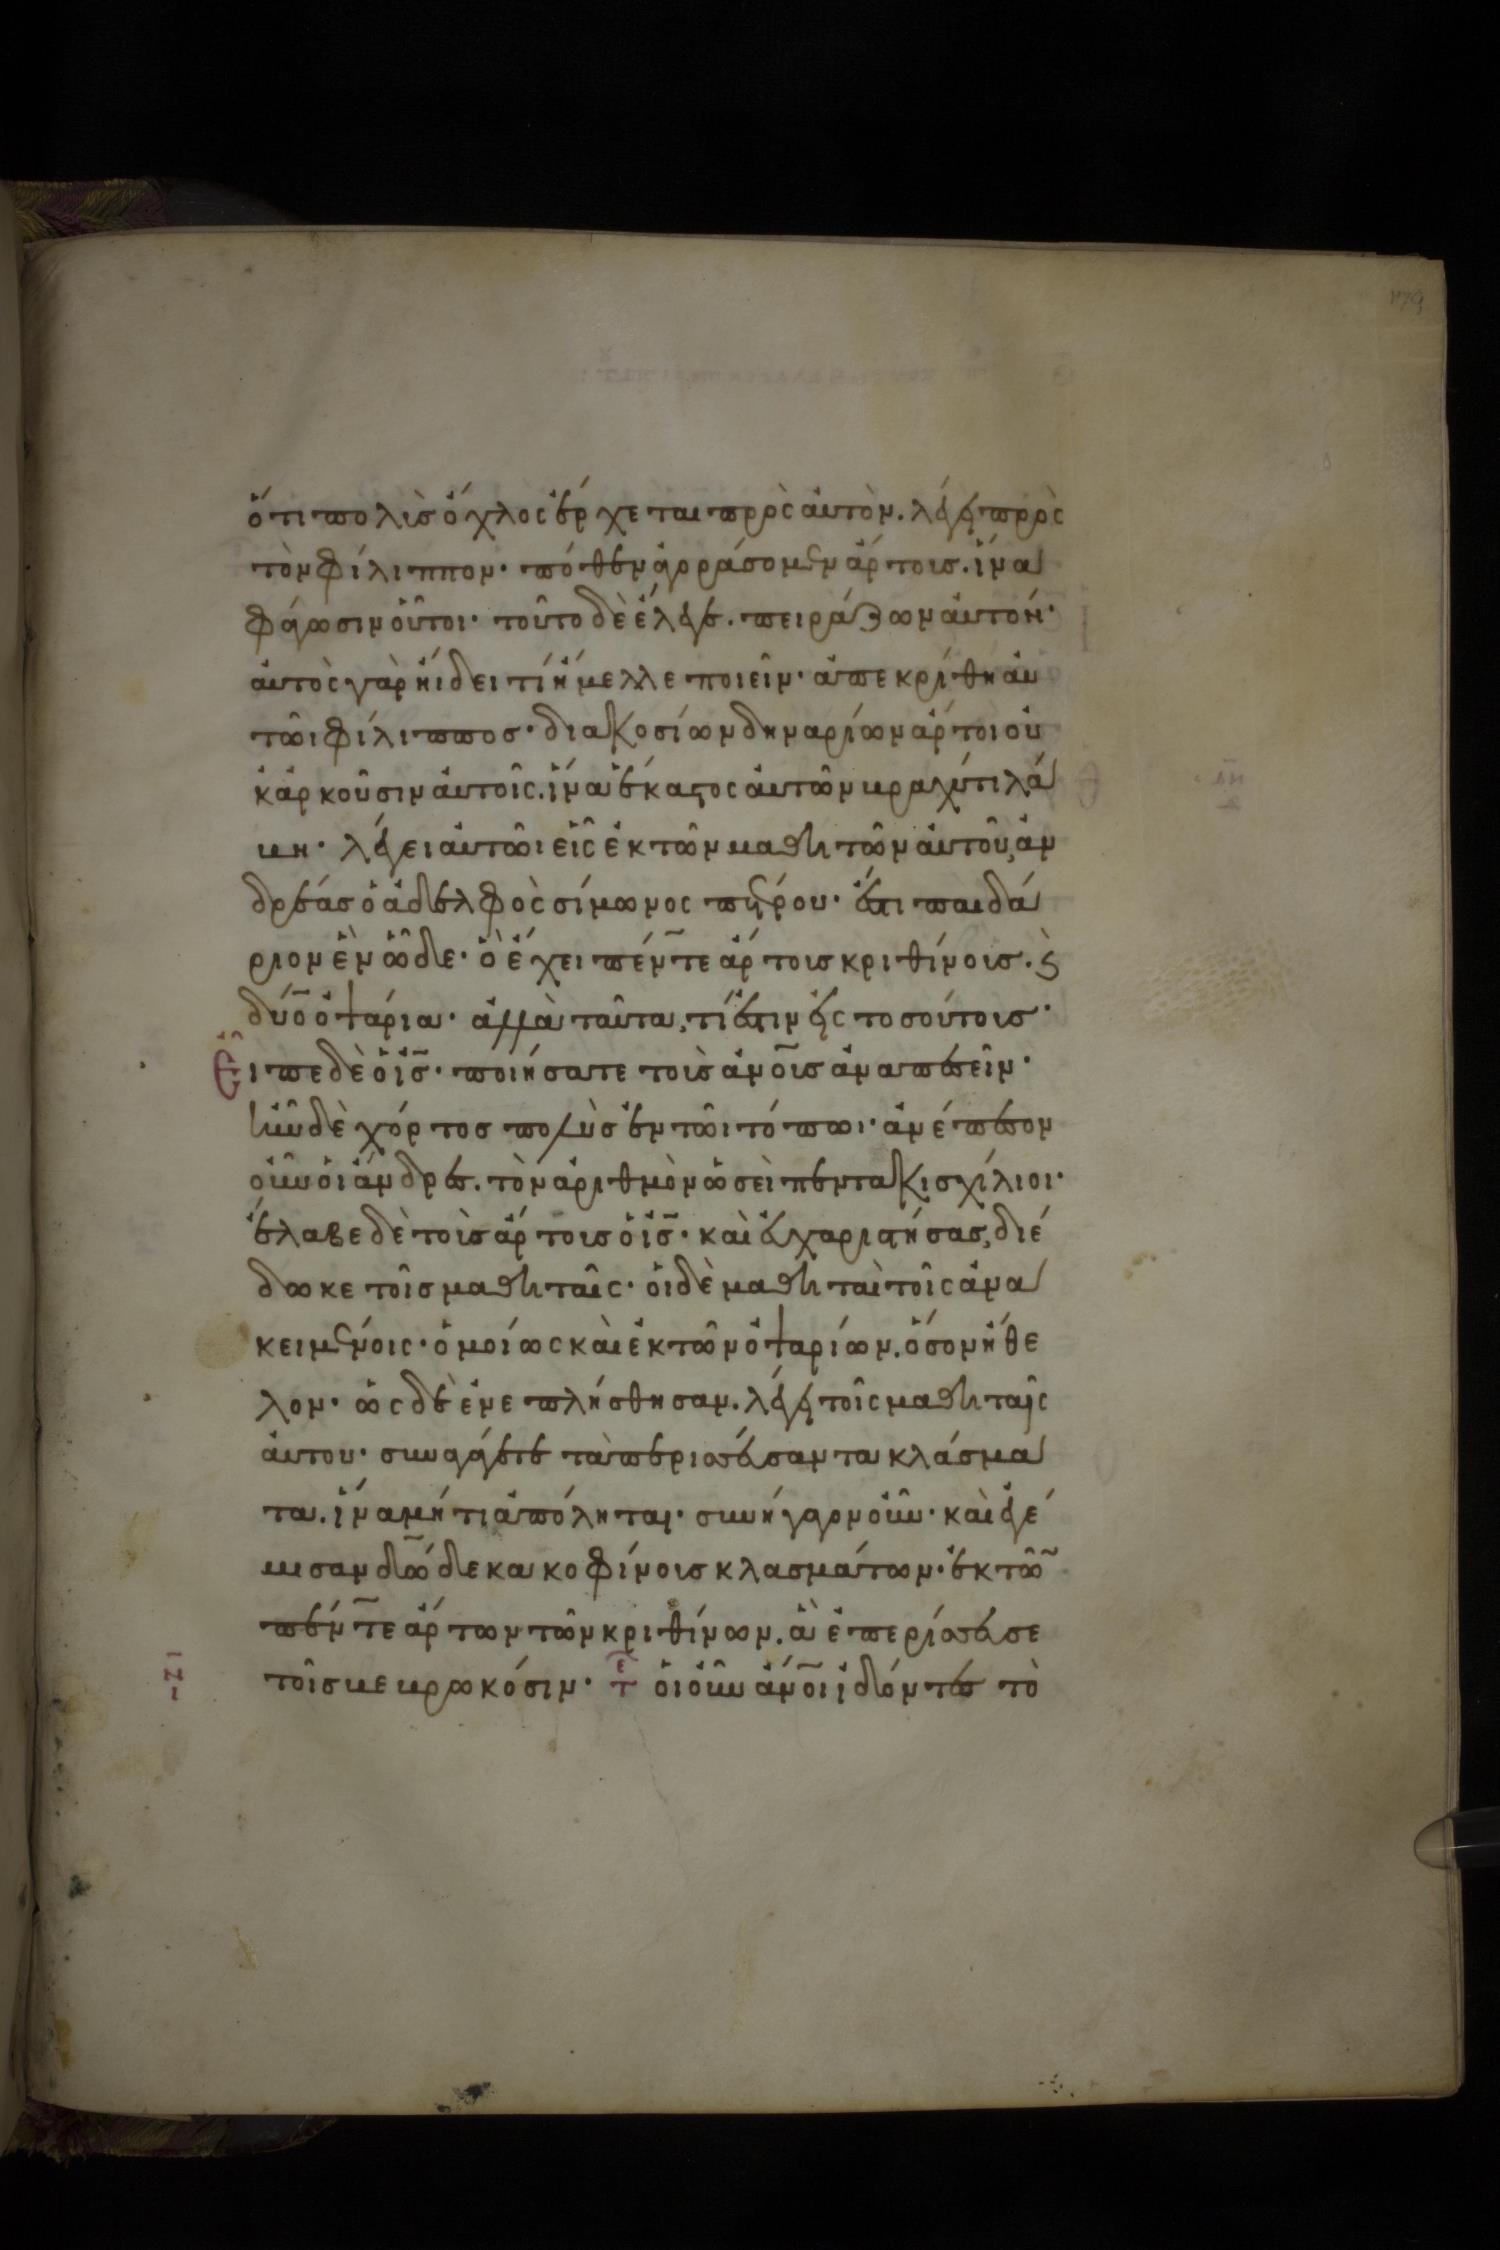 ὅτι πολὺσ ὄχλος ἔρχεται πρὸς ἀυτὸν. λέγει πρὸς
τὸν φίλιππον· πόθεν ἀγοράσομεν ἄρτους. ἵνα
φάγωσιν οὗτοι· τοῦτο δὲ ἔλεγε. πειράζων ἀυτόν·
ἀυτὸς γὰρ ἤιδει τί ἤμελλε ποιεῖν· ἀπεκρίθη ἀυ
τῶι φίλιππος· διακοσίων δηναρίων ἄρτοι οὐ
κ ἀρκοῦσιν ἀυτοῖς. ἵνα ἕκαστος ἀυτῶν βραχύ τι λά
βη· λέγει ἀυτῶι εἷς ἐκ τῶν μαθητῶν ἀυτοῦ, ἀν
δρέασ ὁ ἀδελφὸς σίμωνος πέτρου· ἔστι παιδά
ριον ἓν ὧδε· ὃ ἔχει πέντε ἄρτους κριθίνους. κὶ
δύο ὀψάρια· ἀλλὰ ταῦτα, τί ἔστιν εἰς τοσούτους·
Εἶπε δὲ ὁ ἰς̅· ποιήσατε τοὺσ ἀνο̅υσ ἀναπεσεῖν·
ἦν δὲ χόρτοσ πολὺσ ἐν τῶι τόπωι· ἀνέπεσον
οὖν οἱ ἄνδρες. τὸν ἀριθμὸν ὡσεὶ πεντακισχίλιοι·
ἔλαβε δὲ τοὺσ ἄρτους ὁ ἰς̅· καὶ ἐυχαριστήσας, διέ
δωκε τοῖσ μαθηταῖς· οἱ δὲ μαθηταὶ τοῖς ἀνα
κειμένοις· ὁμοίως καὶ ἐκ τῶν ὀψαρίων. ὅσον ἤθε
λον· ὡς δὲ ἐνεπλήσθησαν. λέγει τοῖς μαθηταῖς
ἀυτου· συναγάγετε τὰ περισσεύσαντα κλάσμα
τα. ἵνα μή τι ἀπόληται· συνήγαγον οὖν· καὶ ἐγέ
μισαν δώδεκα κοφίνους κλασμάτων· ἐκ τῶ̅
πέντε ἄρτων τῶν κριθίνων. ἃ ἐπερίσσευσε
ιζ τοῖσ βεβρωκόσιν· τε οἱ οὖν ἄνο̅ι ἰδόντες τὸ